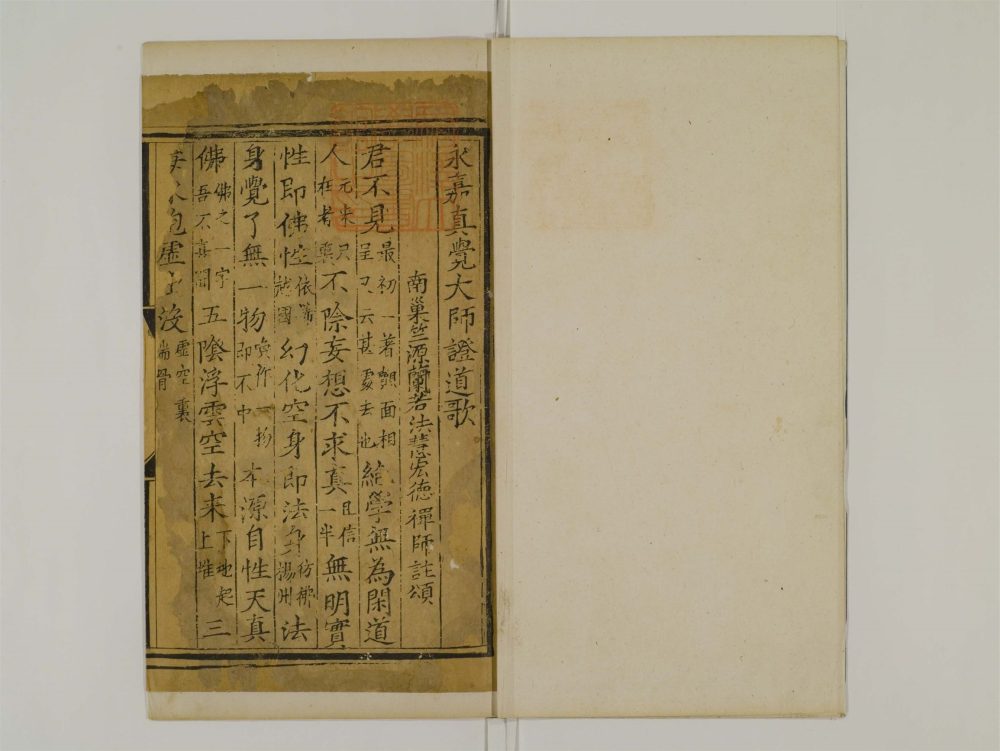 永嘉真覺大師證道歌
南巢竺源蘭若法慧宏德禪師註頌
君不見最初一著覿面相呈又云甚處去也絕學無為閑道
人元來只在者裏不除妄想不求真且信一半無明實
性即佛性依舊越國幻化空身即法身彷彿揚州法
身覺了無一物喚作一物即不中本源自性天真
佛佛之一字吾不喜聞五陰浮雲空去來下地起上堆三
泡虛出沒虛空裏骨